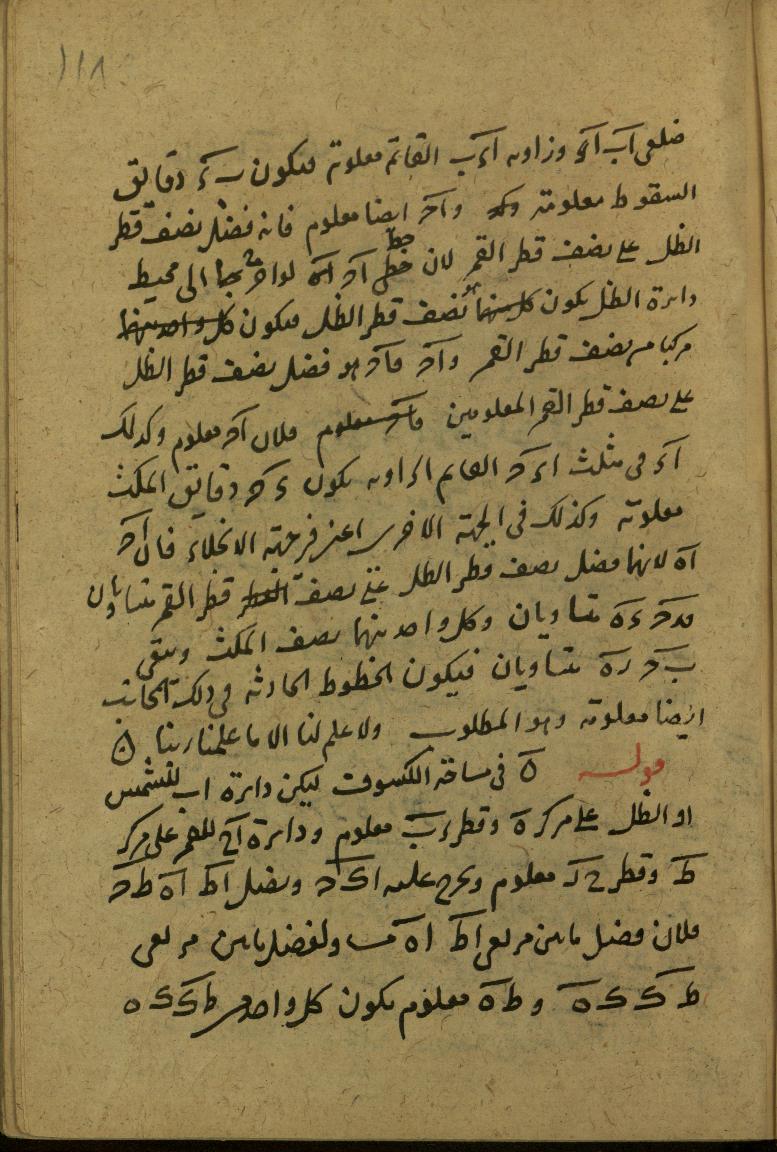 ١١٨
ضلعى اب اء وزاوىه اءب القائمة معلومة فيكون ب ء دقايق
السقوط معلومة واح ايضا معلوم فانه فضل نصف قطر
الظل على نصف قطر القمر لان خطى اح اه لو اخرجا الى محيط
دايرة الظل يكون نصف قطر الظل فيكون كل واحد منهما
مركبا من نصف قطر القمر واح فاح هو فضل نصف قطر الظل
على نصف قطر القمر المعلومين فلان اح معلوم وكذلك
اء فى مثلث اءح القايم الزاوىه يكون ءح دقايق المكث
معلومة وكذلك فى الجهة الاخرى اعنى فى جهة الانجلاء فان اح
اه لانهما فضل نصف قطر الظل على نصف قطر القمر متساويان
فدح ءه متساويان وكل واحد منهما نصف المكث ويبقى
ب ح ره متساويان فيكون الخطوط الحادثة فى ذلك الجانب
ايضا معلومة وهو المطلوب ولا علم لنا الا ما علمنا ربنا ن
قولـــه ه فى مساحة الكسوف ليكن دايرة اب للشمس
او الظل على مركز ه وقطر ءب معلوم ودايرة اح للقمر على مركز
ط وقطر ح ك معلوم ويخرج عليه اك ح ونصل اط اه ط ح
فلان فضل ما بين مربعى اط اه ولفضل ما بين مربعى
ط ك ك ه و ط ه معلوم يكون كل واحد من ط ك ك ه